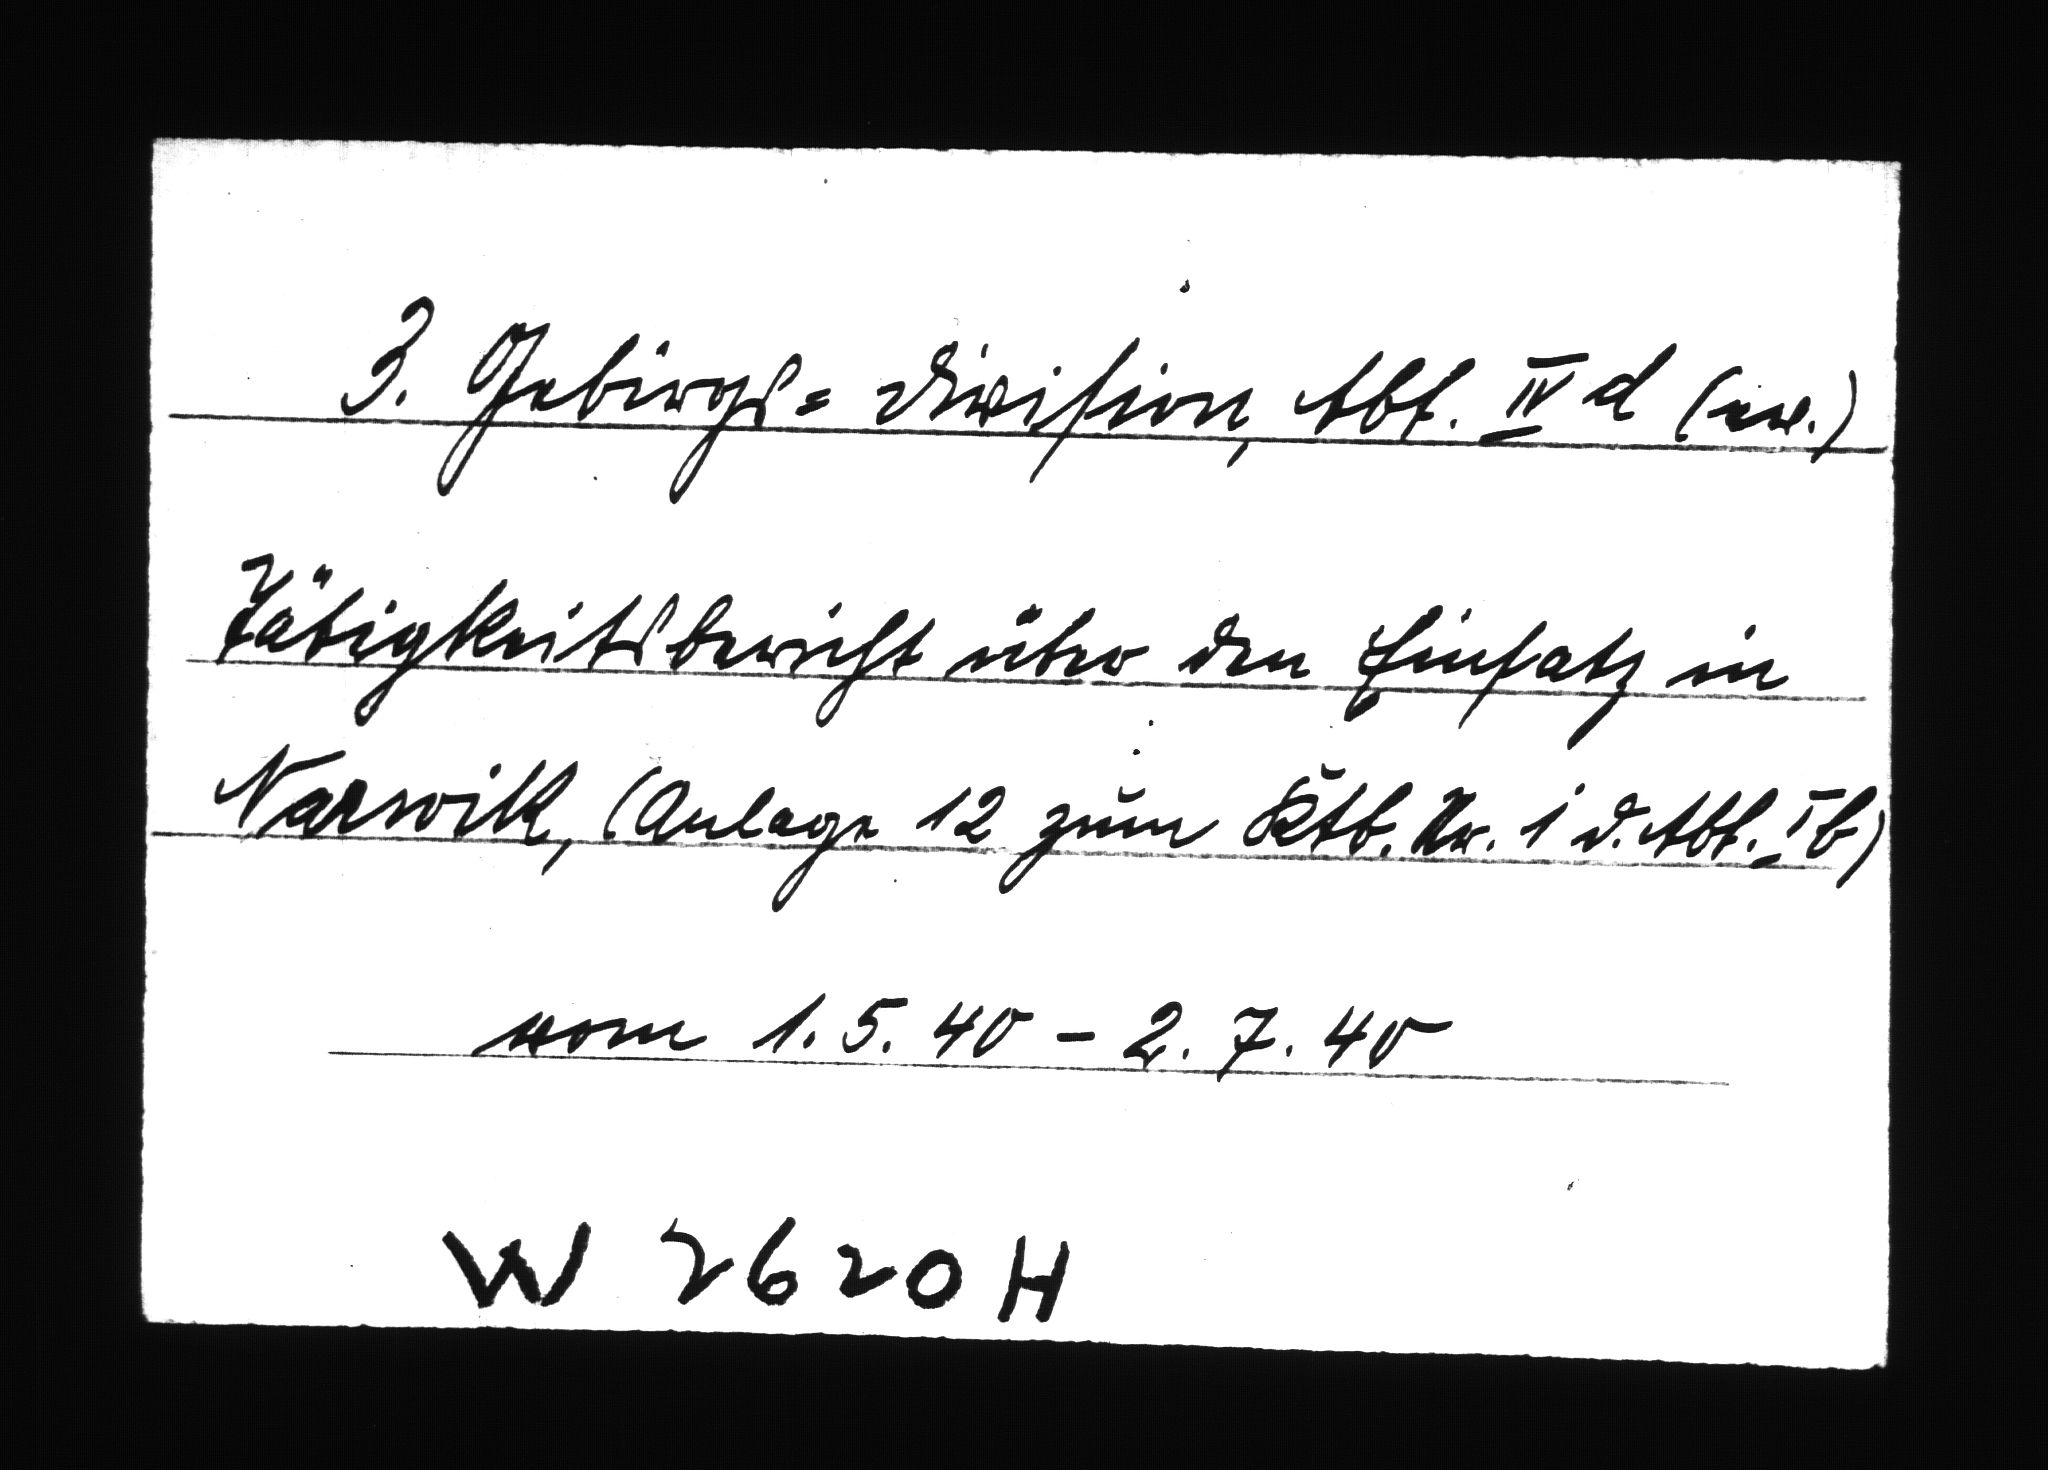 3. Gebirgs= Division, Abt. IV d (ev.)
Tätigkeitsbericht über den Einsatz in
Narwik, (Anlage 12 zum Ktb. Nr. 1 d. Abt. Ib)
vom 1.5.40 - 2.7.40
W 2620 H